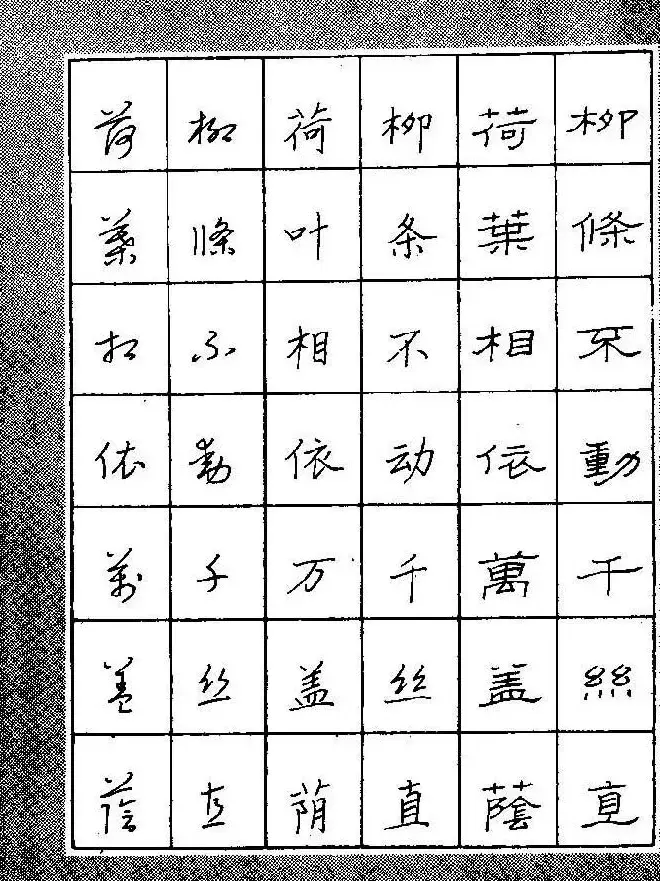 柳條不動千絲直
荷葉相依萬盖蔭
柳条不动千丝直
荷叶相依万盖荫
柳條不動千丝直
荷葉相依萬盖蔭